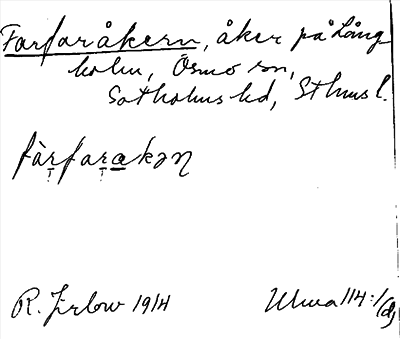 Farfaråkern, åker på Lång
holm, Ösmo sn,
Sotholms hd, Sthms l.
fàrfarakən
R. Jirlow 1914
Ulma 114:1(d)